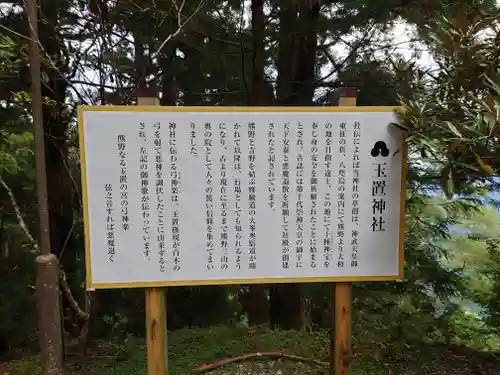 玉置神社
社伝によれば当神社の草創は、神武天皇の御
東征の折、八咫烏の案内にて熊野より大和
の地を目指す途上、この地にて十種神宝を
奉じ身の安全を御祈願されたことに始まる
とされ、古誌には第十代崇神天皇の御宇に
天下安泰と悪魔退散を祈願して社殿が創建
されたと記されています。
熊野と吉野を結ぶ修験道の大峯奥駈道が開
かれて以降は、行場としても知られるよう
になり、古より現在に至るまで熊野三山の
奥の院として人々の篤い信仰を集めてまい
りました。
神社に伝わる弓神楽は、玉置権現が白木の
弓を射て悪神を調伏したことに由来すると
され、左記の御神歌が伝わっています。
熊野なる玉置の宮の弓神楽
弦之音すれば悪魔退く